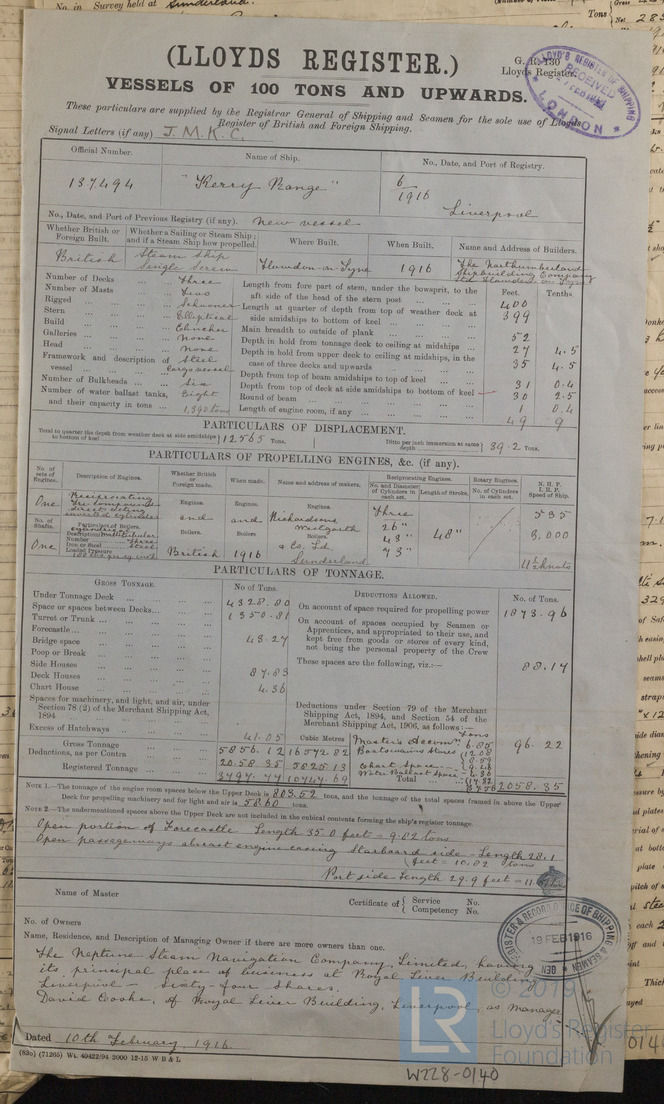 No. in Survey held at Sunderland.
(LLOYDS REGISTER.)
G. R. 130
Lloyds Register.
LLOYD'S REGISTER OF SHIPPING
RECEIVED
FEB
LONDON
VESSELS OF 100 TONS AND UPWARDS.
These particulars are supplied by the Registrar General of Shipping and Seamen for the sole use of Lloyds
Register of British and Foreign Shipping.
Signal Letters (if any) J.M.K.C.
Official Number. Name of Ship. No., Date, and Port of Registry.
137494 "Kerry Range" 6/1916 Liverpool
No., Date, and Port of Previous Registry (if any). New vessel
Whether British or Foreign Built. Whether a Sailing or Steam Ship; and if a Steam Ship how propelled. Where Built. When Built. Name and Address of Builders.
British Steam Ship Single Screw Howdon-on-Tyne 1916 The Northumberland Shipbuilding Company Ltd Howdon on Tyne
Number of Decks Three
Number of Masts Two
Rigged Schooner
Stern Elliptical
Build Clincher
Galleries None
Head None
Framework and description of vessel Steel cargo vessel
Number of Bulkheads Six
Number of water ballast tanks, and their capacity in tons Eight 1,390 tons
Feet. Tenths.
Length from fore part of stem, under the bowsprit, to the aft side of the head of the stern post 400
Length at quarter of depth from top of weather deck at side amidships to bottom of keel 399
Main breadth to outside of plank 52
Depth in hold from tonnage deck to ceiling at midships 27 4.5
Depth in hold from upper deck to ceiling at midships, in the case of three decks and upwards 35 4.5
Depth from top of beam amidships to top of keel 31 0.4
Depth from top of deck at side amidships to bottom of keel 30 2.5
Round of beam 1 0.4
Length of engine room, if any 49 9
PARTICULARS OF DISPLACEMENT.
Total to quarter the depth from weather deck at side amidships to bottom of keel 12565 Tons. Ditto per inch immersion at same depth 39.2 Tons.
PARTICULARS OF PROPELLING ENGINES, &c. (if any).
No. of sets of Engines. Description of Engines. Whether British or Foreign made. When made. Name and address of makers. Reciprocating Engines. Rotary Engines. N.H.P. I.H.P. Speed of Ship.
No. and Diameter of Cylinders in each set. Length of Stroke. No. of Cylinders in each set.
One Reciprocating Tri compound direct acting inverted cylinder
Engines. Engines. Engines.
and and Richardsons Westgarth & Co. Ld Sunderland
Three 26" 43" 73" 48"
535
3,000
11½ knots
No. of Shafts. Particulars of Boilers.
One Description Multitubular
Number Three
Iron or Steel Steel
Loaded Pressure
Boilers. Boilers Boilers.
British 1916
PARTICULARS OF TONNAGE.
GROSS TONNAGE. No. of Tons.
Under Tonnage Deck 4328.80
Space or spaces between Decks 1350.81
Turret or Trunk
Forecastle
Bridge space 43.27
Poop or Break
Side Houses
Deck Houses 87.83
Chart House 4.36
Spaces for machinery, and light, and air, under Section 78 (2) of the Merchant Shipping Act, 1894
Excess of Hatchways 41.05 Cubic Metres
Gross Tonnage 5856.12 16572.82
Deductions, as per Contra 2058.35 5825.13
Registered Tonnage 3797.77 10747.69
DEDUCTIONS ALLOWED. No. of Tons.
On account of space required for propelling power 1873.96
On account of spaces occupied by Seamen or Apprentices, and appropriated to their use, and kept free from goods or stores of every kind, not being the personal property of the Crew
These spaces are the following, viz.:— 88.17
Deductions under Section 79 of the Merchant Shipping Act, 1894, and Section 54 of the Merchant Shipping Act, 1906, as follows:—
Tons
Master's Accom. 6.85
Boatswains Stores 12.08
Chart Space
Water Ballast Space
96.22
Total 2058.35
NOTE 1.—The tonnage of the engine room spaces below the Upper Deck is 803.52 tons, and the tonnage of the total spaces framed in above the Upper
Deck for propelling machinery and for light and air is 58.60 tons.
NOTE 2.—The undermentioned spaces above the Upper Deck are not included in the cubical contents forming the ship's register tonnage.
Open portion of Forecastle Length 35.0 feet = 9.02 tons
Open passageways abreast engine casing Starboard side - Length 28.1
feet = 10.02 tons
Port side Length 29.9 feet =
Name of Master Certificate of { Service No. Competency No.
No. of Owners
Name, Residence, and Description of Managing Owner if there are more owners than one.
The Neptune Steam Navigation Company, Limited, having
its principal place of business at Royal Liver Building
Liverpool — Sixty-four Shares.
David Cooke, of Royal Liver Building, Liverpool, as Manager
REGISTER & RECORD OFFICE OF SHIPPING & SEAMEN
19 FEB 1916
Dated 10th February, 1916.
(83o) (71265) Wt. 49422/94 2000 12-15 W B & L
© 2019
LR
Lloyd's Register
Foundation
W228-0140